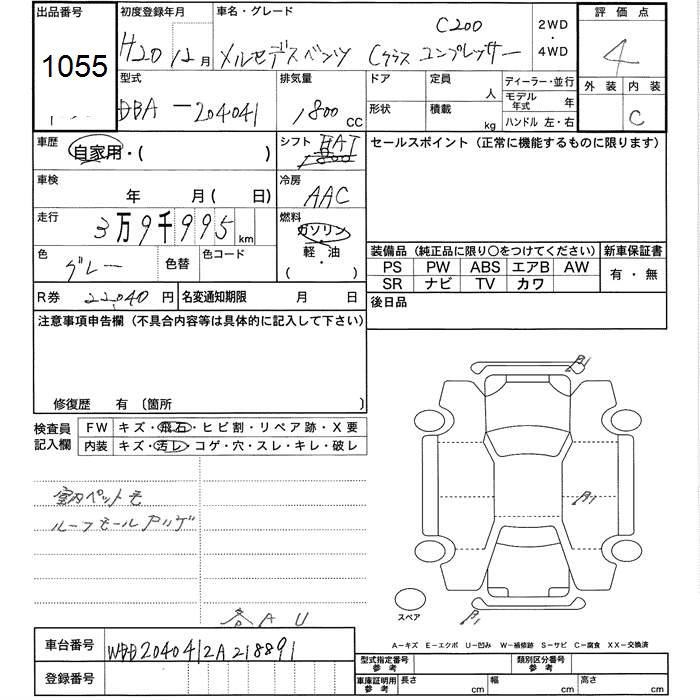 出品番号
1055
初度登録年月
H20 12月
車名・グレード
C200
メルセデスベンツ Cクラス コンプレッサー
2WD
・
4WD
評価点
4
外装 内装
C
型式
DBA-204041
排気量
1800 CC
ドア
形状
定員 人
積載 kg
ディーラー・並行
モデル年式 年
ハンドル 左・右
車歴
自家用・( )
シフト
FAT
セールスポイント（正常に機能するものに限ります）
車検
年 月( 日)
冷房
AAC
走行
3万9千995km
燃料
ガソリン
軽・油
( )
色
グレー
色替
色コード
装備品（純正品に限り○をつけてください）
新車保証書
PS PW ABS エアB AW
SR ナビ TV カワ
有・無
R券 22,040 円
名変通知期限 月 日
後日品
注意事項申告欄（不具合内容等は具体的に記入して下さい）
修復歴 有 〔箇所 〕
検査員
記入欄
FW キズ・飛石・ヒビ割・リペア跡・X要
内装 キズ・汚レ・コゲ・穴・スレ・キレ・破レ
室内ペット毛
ルーフモール
A U
A1
スペア
A－キズ E－エクボ U－凹み W－補修跡 S－サビ C－腐食 XX－交換済
車台番号
WDD2040412A218891
登録番号
型式指定番号
参考
類別区分番号
参考
車庫証明用
参考
長さ cm 幅 cm 高さ cm